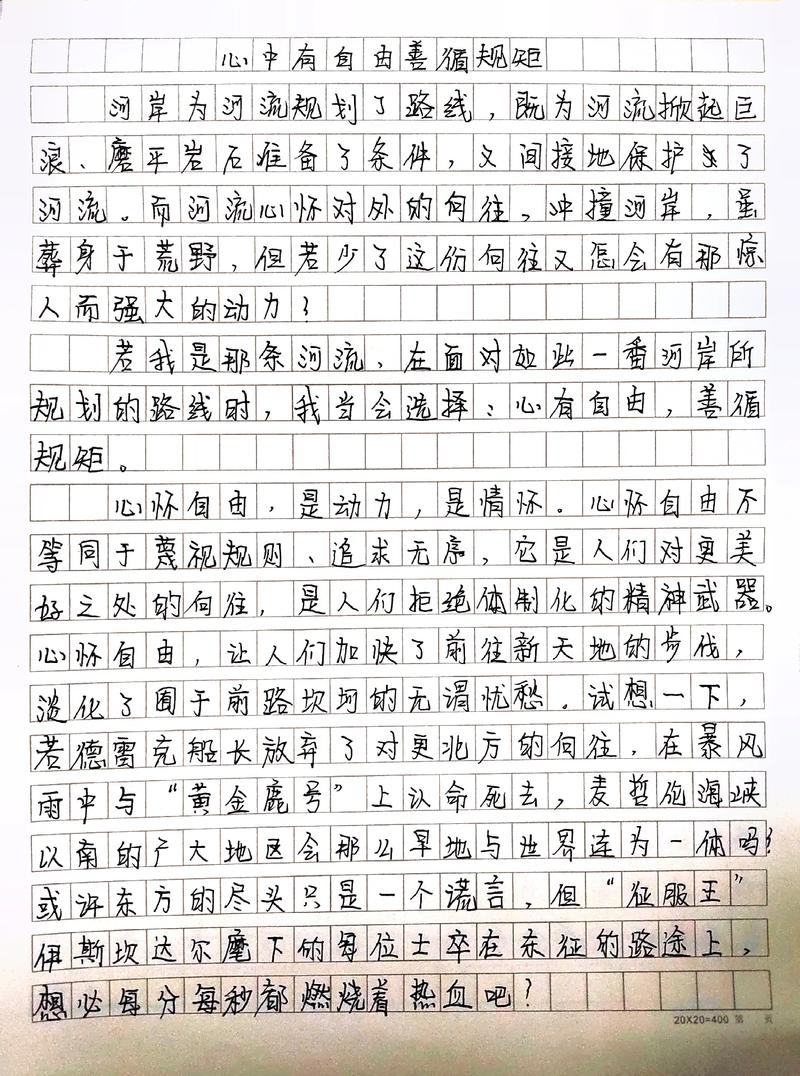 心中有自由善循规矩
河岸为河流规划了路线，既为河流掀起巨
浪、磨平岩石准备了条件，又间接地保护了
河流。而河流心怀对外的向往，冲撞河岸，虽
葬身于荒野，但若少了这份向往又怎会有那惊
人而强大的动力？
若我是那条河流，在面对如此一番河岸所
规划的路线时，我当会选择：心有自由，善循
规矩。
心怀自由，是动力，是情怀。心怀自由不
等同于蔑视规则、追求无序，它是人们对更美
好之处的向往，是人们拒绝体制化的精神武器。
心怀自由，让人们加快了前往新天地的步伐，
淡化了囿于前路坎坷的无谓忧愁。试想一下，
若德雷克船长放弃了对更北方的向往，在暴风
雨中与“黄金鹿号”上认命死去，麦哲伦海峡
以南的广大地区会那么早地与世界连为一体吗？
或许东方的尽头只是一个谎言，但“征服王”
伊斯坎达尔麾下的每位士卒在东征的路途上，
想必每分每秒都燃烧着热血吧？
20X20=400 第 页